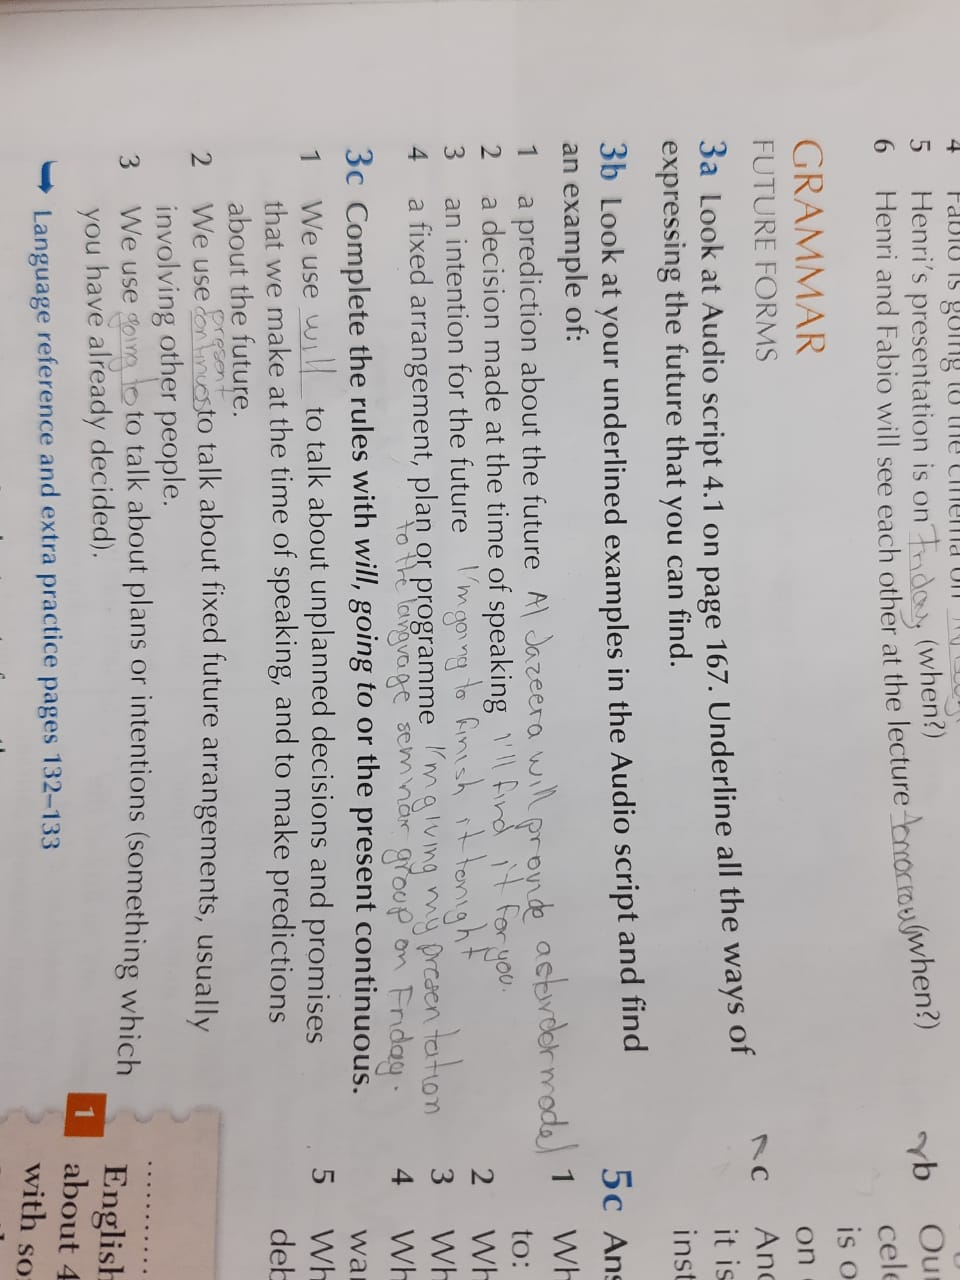 5 Henri's presentation is on Friday, (when?)
6 Henri and Fabio will see each other at the lecture tomorrow (when?)
GRAMMAR
FUTURE FORMS
3a Look at Audio script 4.1 on page 167. Underline all the ways of
expressing the future that you can find.
3b Look at your underlined examples in the Audio script and find
an example of:
1 a prediction about the future Al Jazeera will provide a
2 a decision made at the time of speaking I'll find it for you.
3 an intention for the future I'm going to finish it tonight
4 a fixed arrangement, plan or programme I'm giving my presentation
to the language seminar group on Friday.
3c Complete the rules with will, going to or the present continuous.
1 We use will to talk about unplanned decisions and promises
that we make at the time of speaking, and to make predictions
about the future.
present
2 We use to talk about fixed future arrangements, usually
involving other people.
3 We use going to to talk about plans or intentions (something which
you have already decided).
Language reference and extra practice pages 132–133
b Ou
cele
is o
on
c An
it is
inst
5c Ans
1 Wh
to:
2 Wh
3 Wh
4 Wh
wa
5 Wh
deb
1
English
about 4
with so